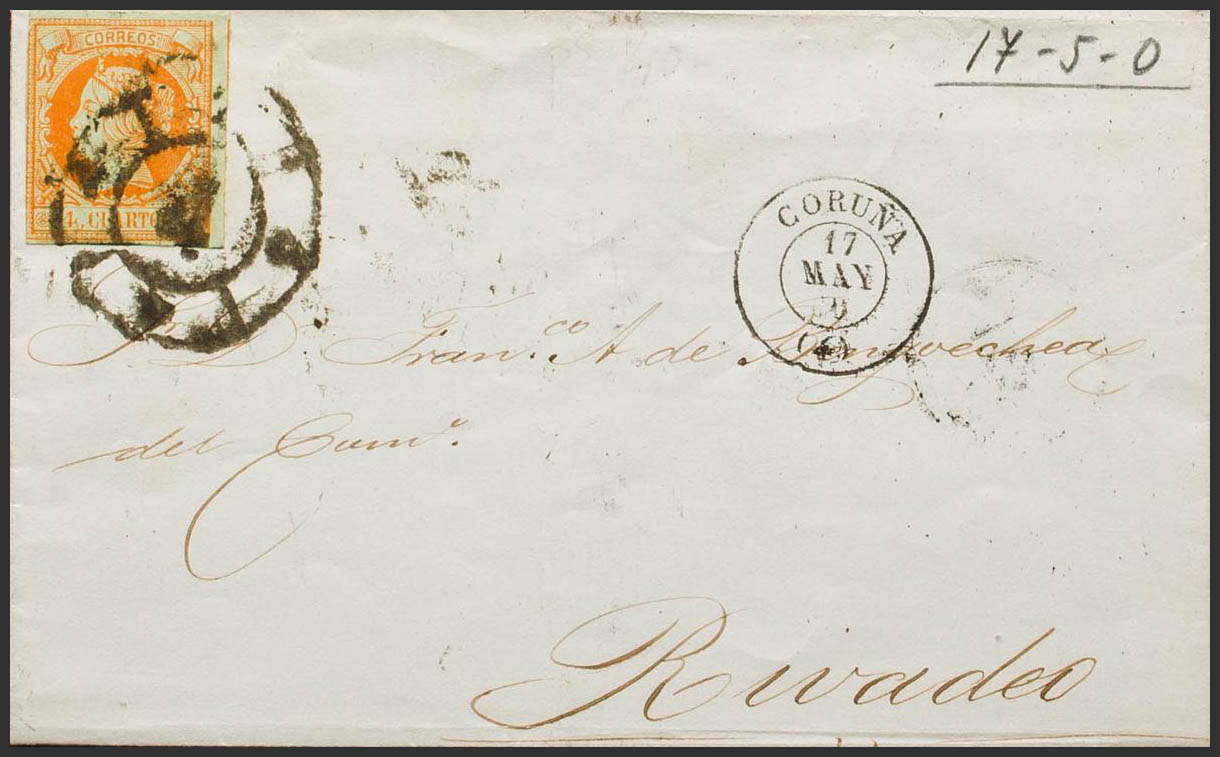 CORREOS
4. CUARTOS
17-5-0
CORUÑA
17
MAY
S. D. Fran.co A. de Bengoechea
del Com.o
Rivadeo